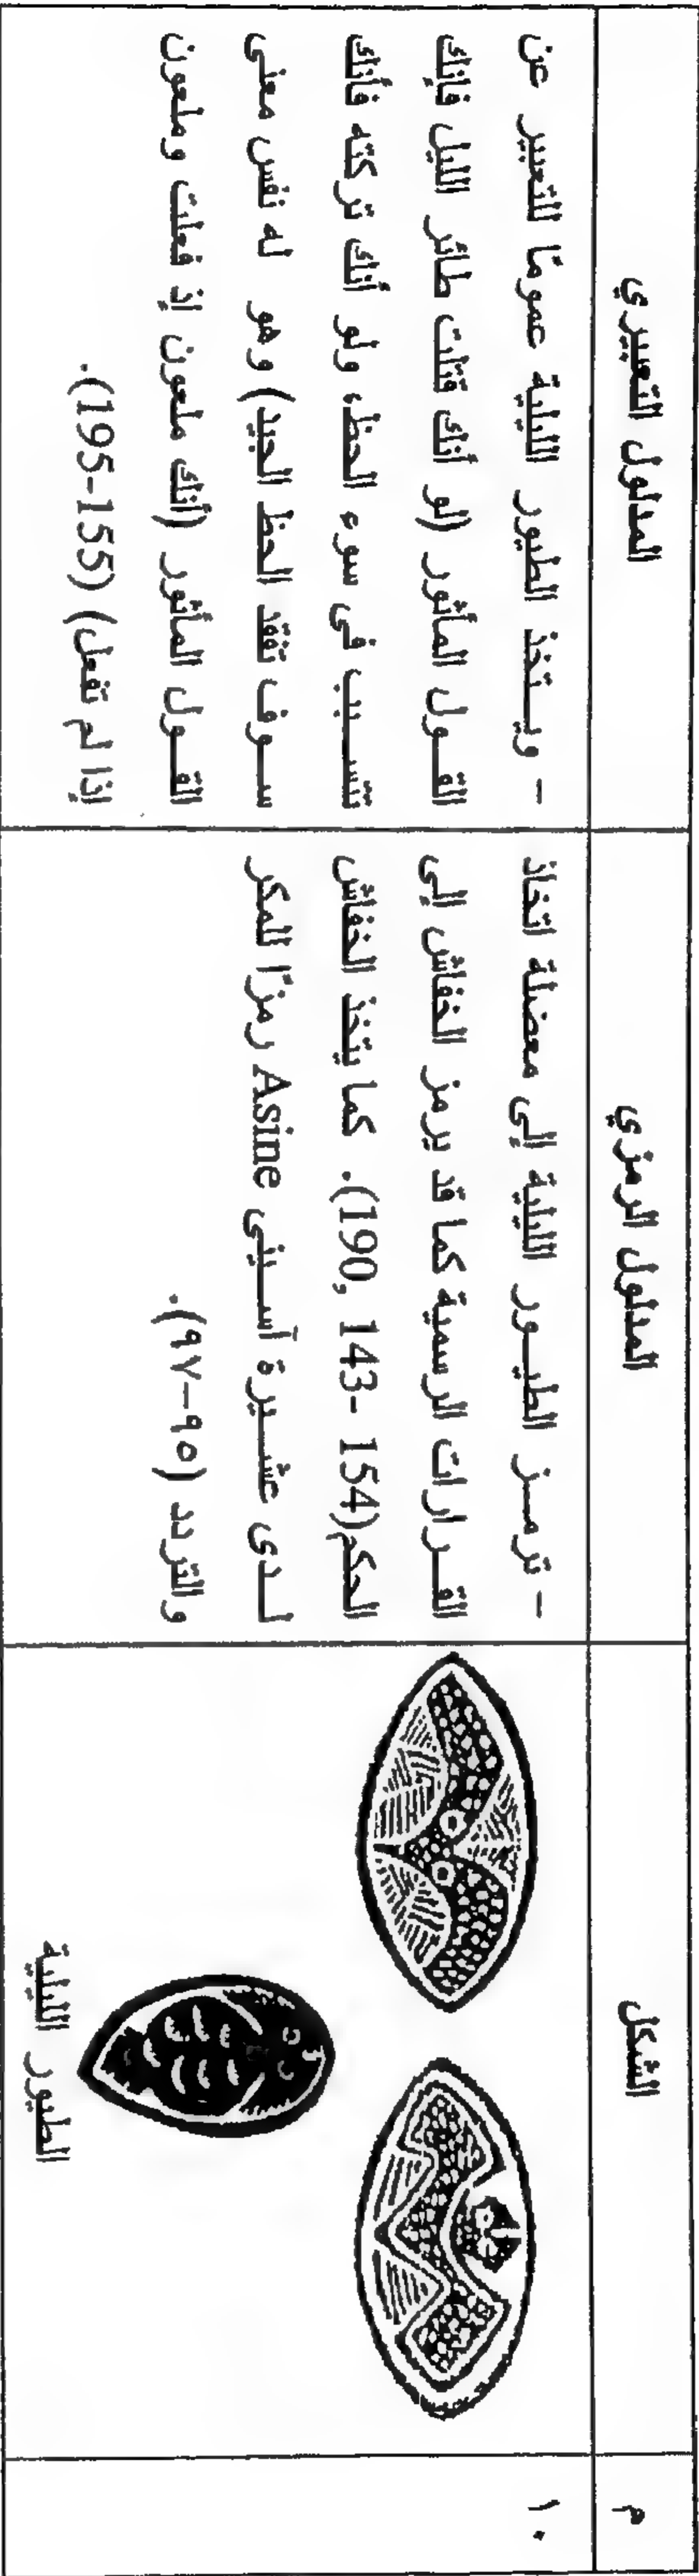 م
الشكل
المدلول الرمزي
المدلول التعبيري
١٠
الطيور الليلية
- ترمـز الطيـور الليلية إلى معضلة اتخاذ
القـرارات الرسمية كما قد يرمز الخفاش إلى
الحكم(154 -143 ,190). كما يتخذ الخفاش
لـدى عشـيرة آسـينى Asine رمزًا للمكر
والتردد (٩٥-٩٧).
- ويـتخذ الطيور الليلية عمومًا للتعبير عن
القـول المأثور (لو أنك قتلت طائر الليل فإنك
تتسـبب فى سوء الحظ، ولو أنك تركته فأنك
سـوف تفقد الحظ الجيد) وهو له نفس معنى
القـول المأثور (أنك ملعون إذ فعلت وملعون
إذا لم تفعل) (155-195).